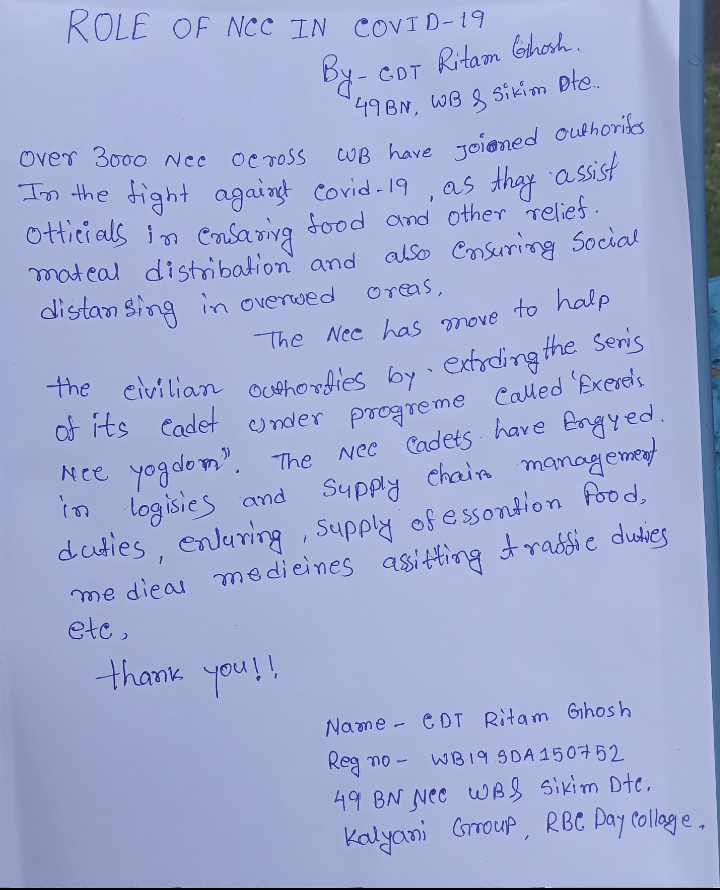 ROLE OF NCC IN COVID-19
By - CDT Ritam Ghosh.
49 BN, WB & Sikim Dte..
over 3000 Ncc ocross WB have joioned outhorites
In the fight against Covid-19, as thay assist
Officials in ensaring food and other relief.
mateal distribation and also ensuring Social
distansing in overwed oreas,
The Ncc has move to halp
the civilian outhordies by. extrding the Seris
of its cadet under progreme called 'Exercis
Ncc yogdom". The Ncc Cadets have Engyed.
in logisies and Supply chain management
duties, enluring, supply of essontion food,
medical medicines assitting traffic duties
etc,
thank you!!
Name - CDT Ritam Ghosh
Reg no - WB19SDA150752
49 BN Ncc WB& Sikim Dte.
Kalyani Group, RBC Day Collage.